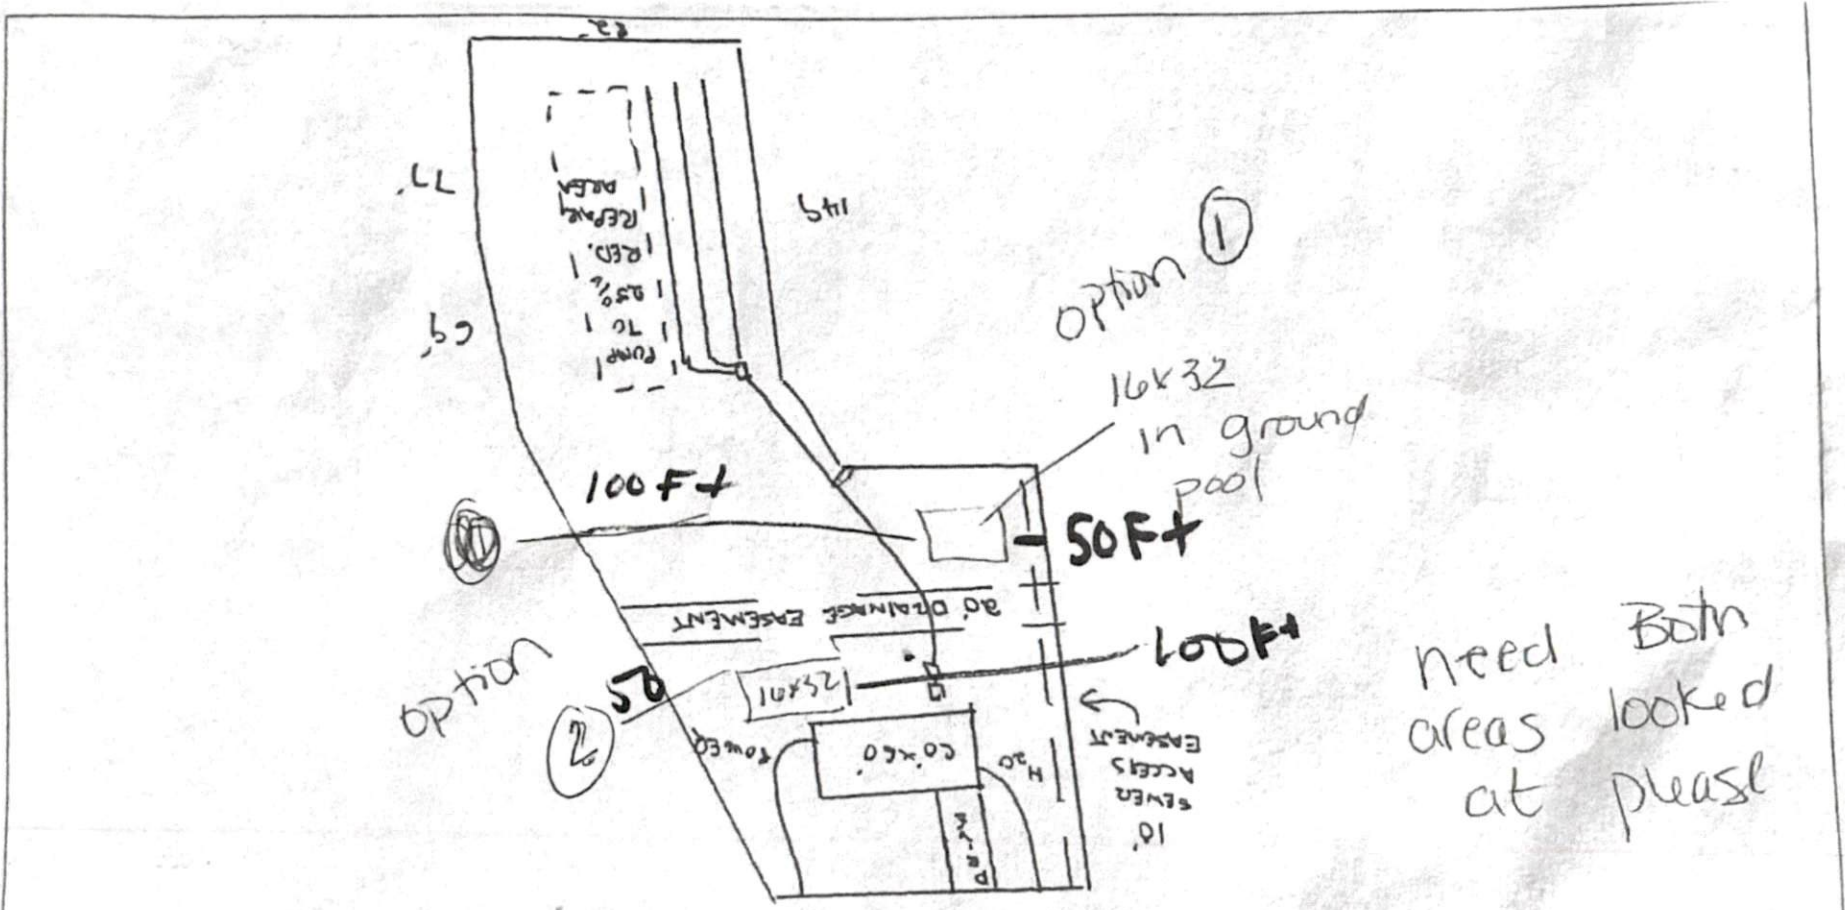 82'
77'
69'
149
PUMP
TO
25%
RED.
REPAIR
AREA
Option 1
16x32
in ground
pool
100 Ft
50 Ft
20' DRAINAGE EASEMENT
100Ft
option
2
50
POWER
60'x60'
H2O
10'
SEWER
ACCESS
EASEMENT
need Both
areas looked
at please